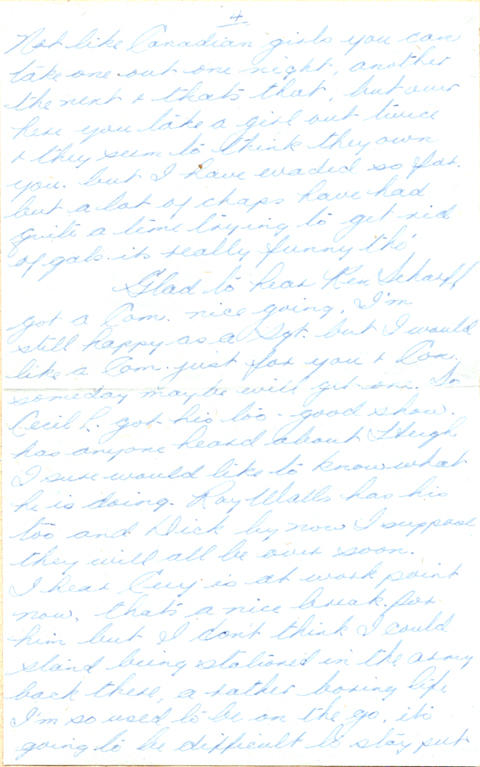 4
Not like Canadian girls you can
take one out one night, another
the next & thats that, but over
here you take a girl out twice
& they seem to think they own
you. but I have evaded so far.
but a lot of chaps have had
quite a time trying to get rid
of gals. its really funny tho'
Glad to hear Ken Scharff
got a Com. nice going, I'm
still happy as a Sgt. but I would
like a Com. just for you & Con.
someday maybe will get one. So
Cecil L. got his too - good show.
has anyone heard about Hugh
I sure would like to know what
he is doing. Ray Walls has his
too and Dick by now I suppose
they will all be over soon.
I hear is at work point
now, thats a nice break for
him but I don't think I could
stand being stationed in the army
back there, a rather boring life
I'm so used to be on the go, its
going to be difficult to stay put